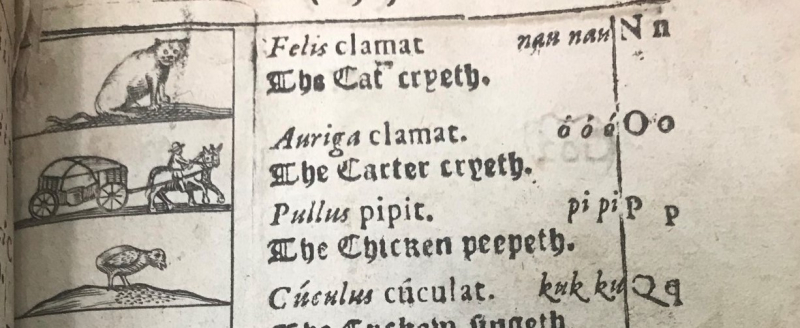 Felis clamat nau nau N n
The Cat cryeth.
Auriga clamat. ó ó ó O o
The Carter cryeth.
Pullus pipit. pi pi P p
The Chicken peepeth.
Cúculus cúculat. kuk ku Q q
singeth